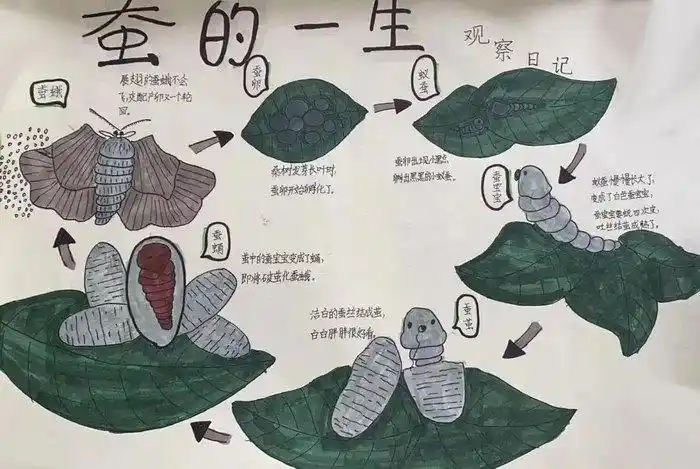 蚕的一生
观察日记
蚕蛾
展翅的蚕蛾不会
飞,交配产卵又一个轮
回。
蚕卵
桑树发芽长叶时,
蚕卵开始孵化了。
蚁蚕
蚕卵出现小黑点,
孵出黑黑的小蚁蚕。
蚕宝宝
蚁蚕慢慢长大了,
变成了白色蚕宝宝,
蚕宝宝要蜕四次皮,
吐丝结茧成熟了。
蚕茧
洁白的蚕丝结成茧,
白白胖胖很好看。
蚕蛹
茧中的蚕宝宝变成了蛹,
即将破茧化蚕蛾。